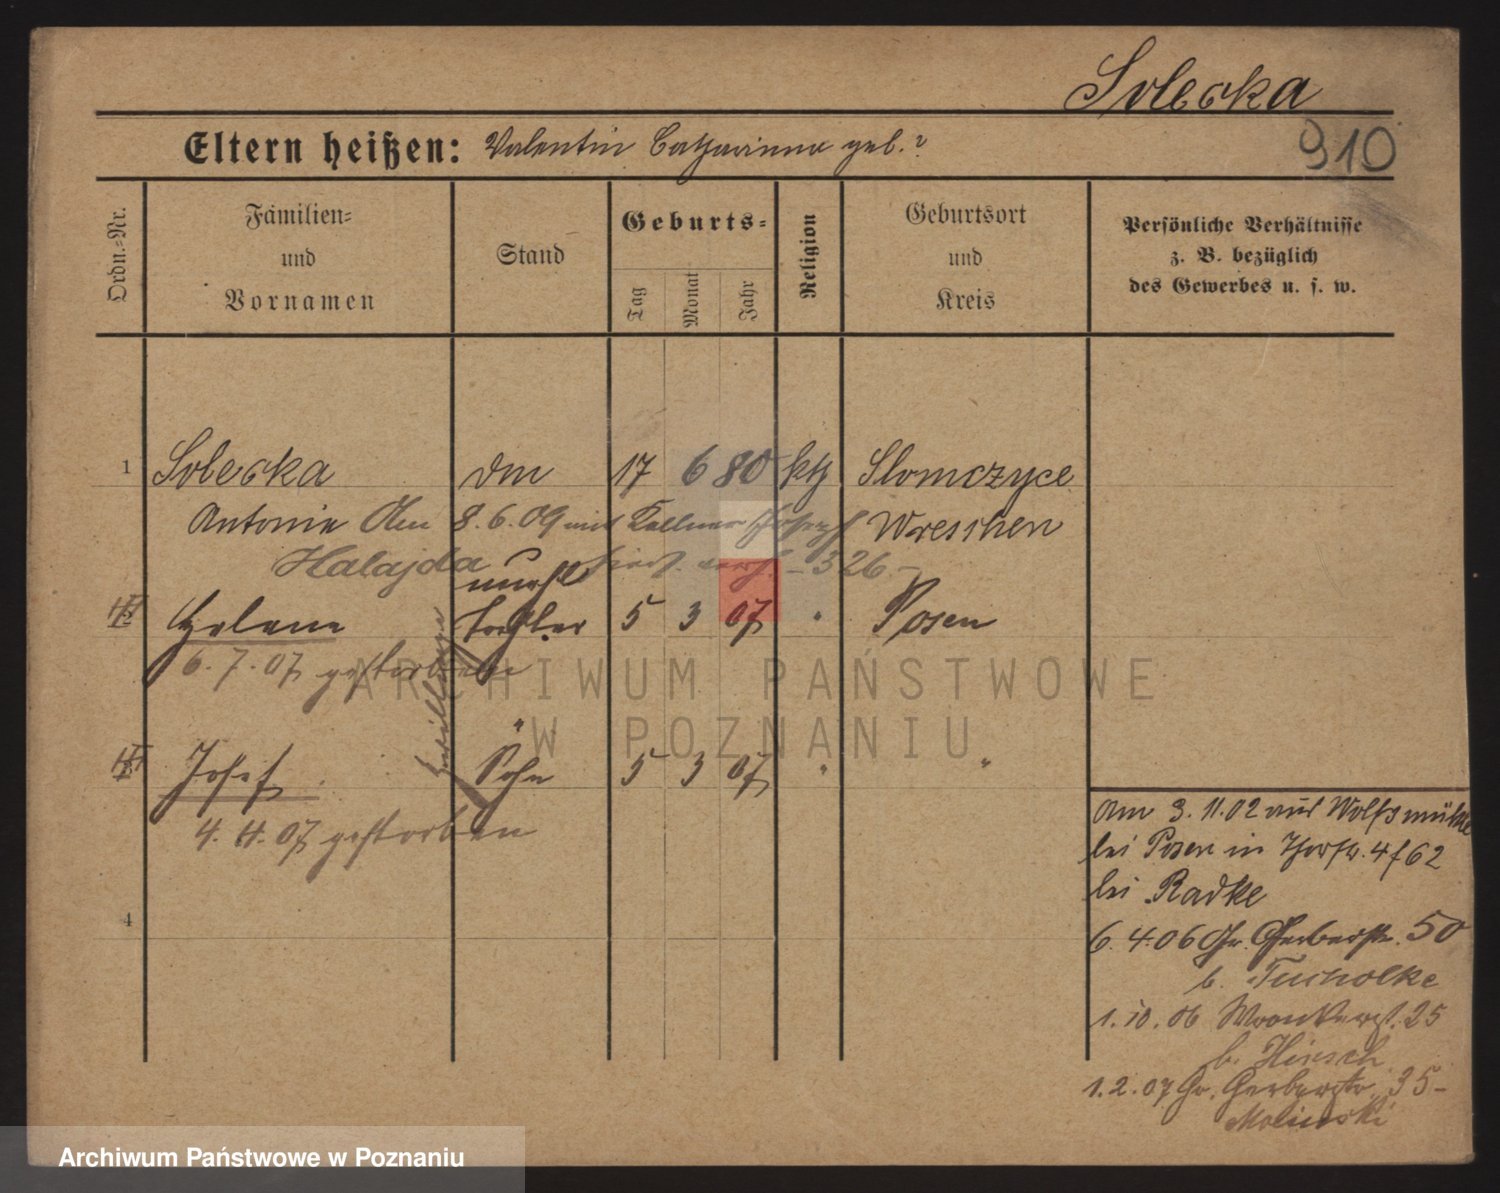 Solecka
Eltern heißen: Valentin Catharina geb. ?
910
Ordn.-Nr.
Familien-
und
Vornamen
Stand
Geburts-
Tag
Monat
Jahr
Religion
Geburtsort
und
Kreis
Persönliche Verhältnisse
z. B. bezüglich
des Gewerbes u. s. w.
1 Solecka 17 6 80 kth Slomczyce
Antonie Am 8. 6. 09 mit Kellner Joseph Wreschen
Halajda verh. - 326 -
unehl
2 Helene Tochter 5 3 07 " Posen
6. 7. 07 gestorben
Zwillinge
"
3 Josef Sohn 5 3 07 " "
4. 4. 07 gestorben
4
Am 3. 11. 02 aus Wolfsmühle
bei Posen in Thorstr. 4 f 62
bei Radke
6. 4. 06 Gr. Gerberstr. 50
b. Tucholke
1. 10. 06 Wronkerst. 25
b. Hirsch
1. 2. 07 Gr. Gerberstr. 35-
Molinski
ARCHIWUM PAŃSTWOWE
W POZNANIU
Archiwum Państwowe w Poznaniu